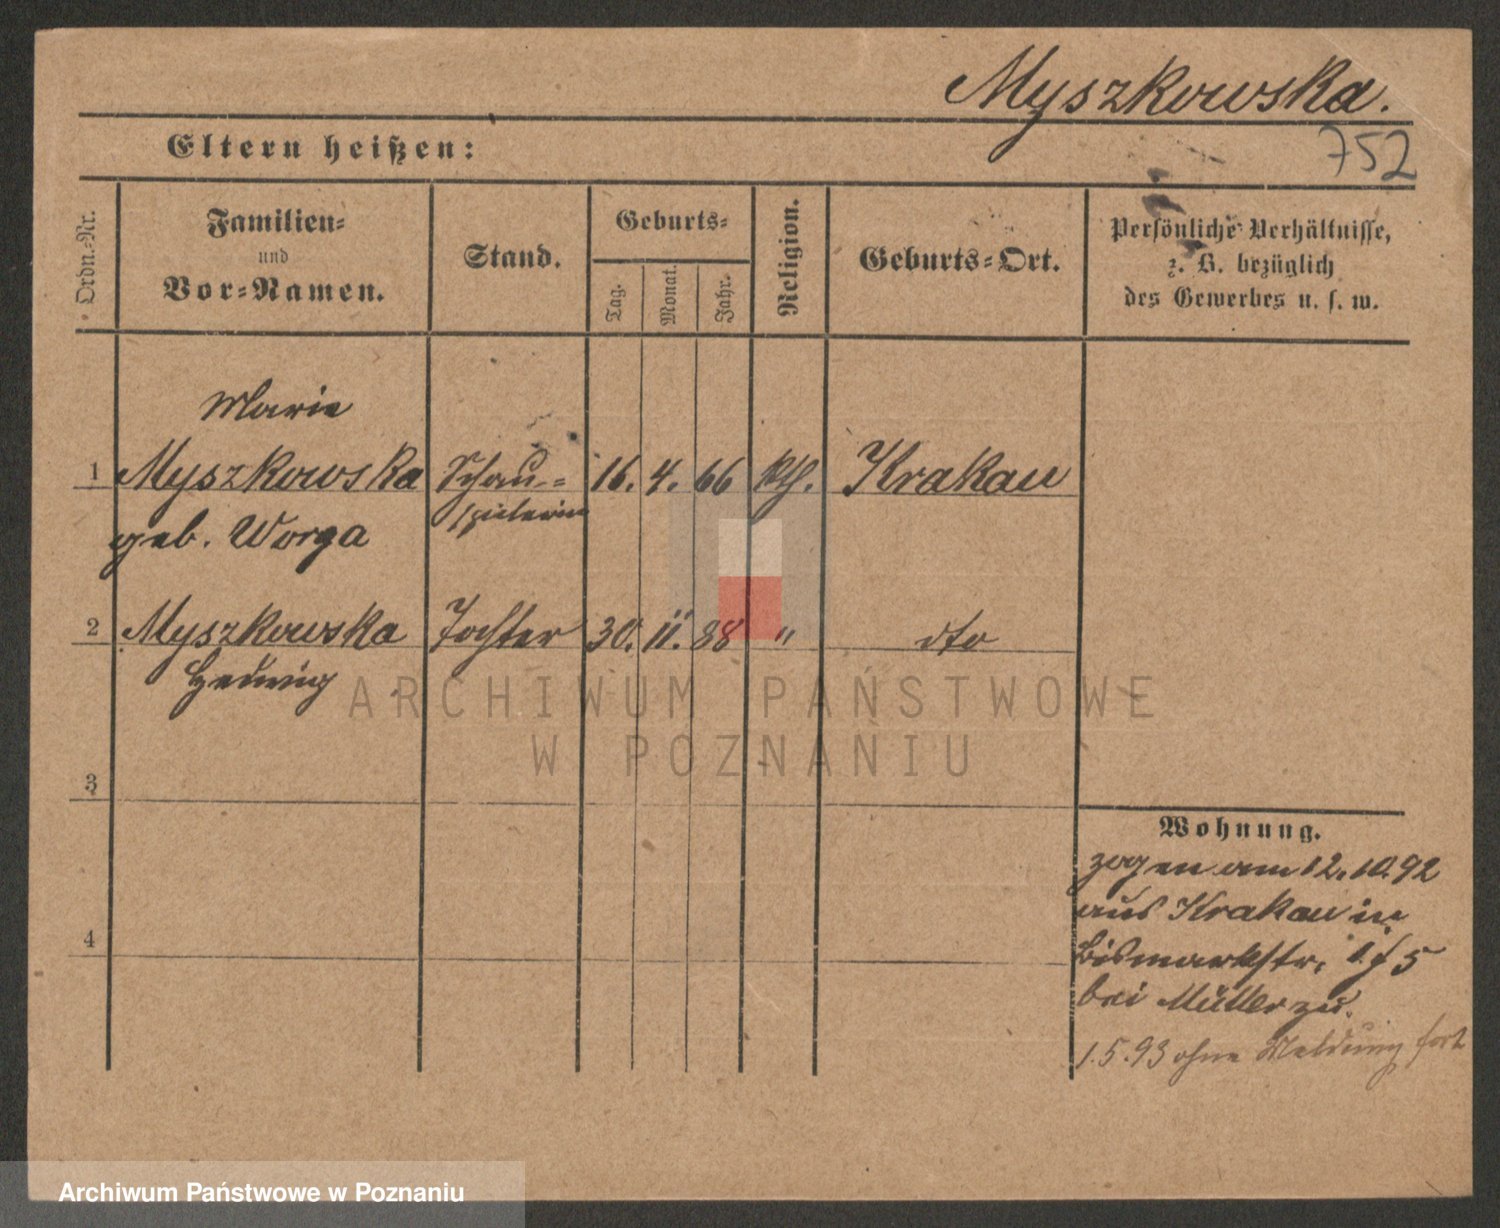 Myszkowska.
752
Eltern heißen:
Ordn.=Nr.
Familien=
und
Vor=Namen.
Stand.
Geburts=
Tag.
Monat.
Jahr.
Religion.
Geburts=Ort.
Persönliche Verhältnisse,
z. B. bezüglich
des Gewerbes u. s. w.
Marie
1 Myszkowska Schau= 16. 4. 66 kth. Krakau
spielerin
geb. Worga
2 Myszkowska Tochter 30. 11. 88 " dto
Hedwig
ARCHIWUM PAŃSTWOWE
W POZNANIU
3
4
Wohnung.
zogen am 12.10.92
aus Krakau in
Bismarkstr. 5
bei Müller zu.
1.5.93 ohne Meldung fort
Archiwum Państwowe w Poznaniu